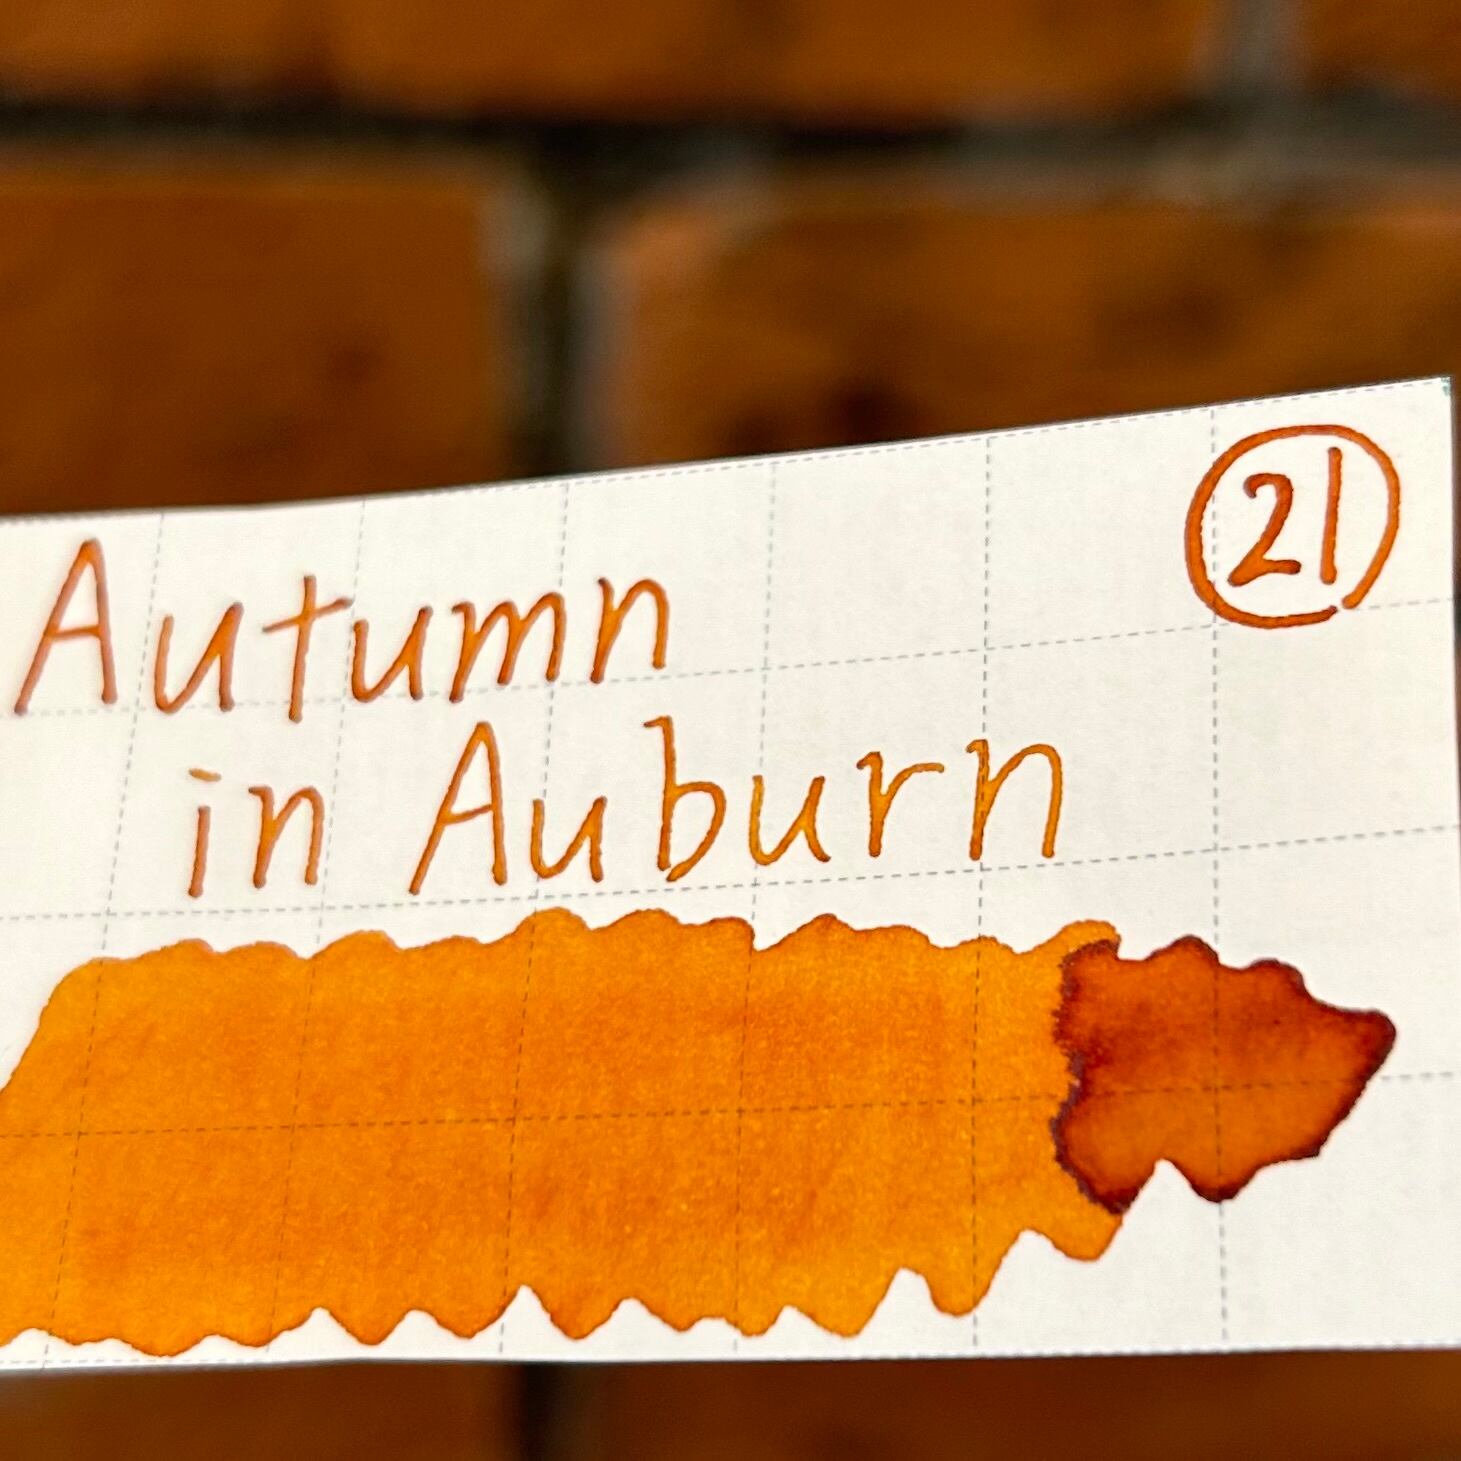 21
Autumn
in Auburn